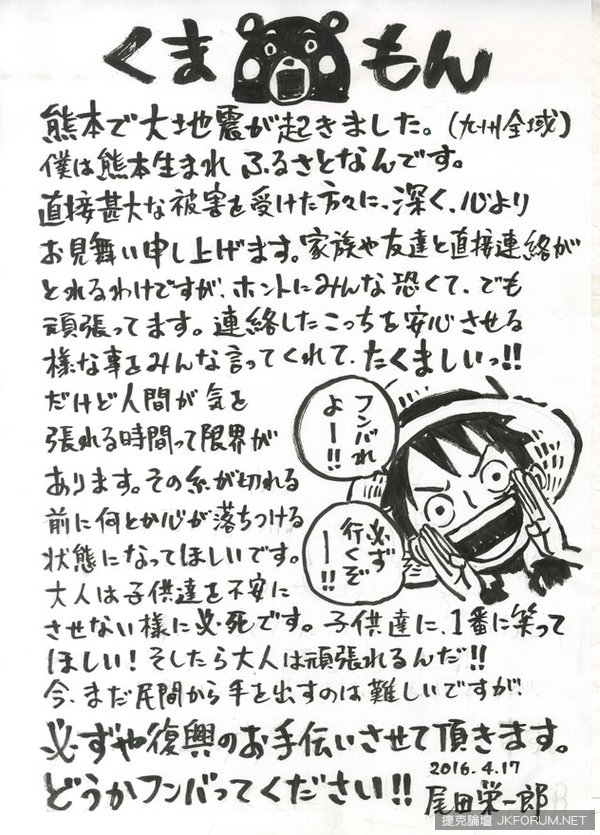 くまもん
熊本で大地震が起きました。(九州全域)
僕は熊本生まれ ふるさとなんです。
直接甚大な被害を受けた方々に、深く、心より
お見舞い申し上げます。家族や友達と直接連絡が
とれるわけですが、ホントにみんな恐くて、でも
頑張ってます。連絡したこっちを安心させる
様な事をみんな言ってくれて、たくましいっ!!
だけど人間が気を
張れる時間って限界が
あります。その糸が切れる
前に何とか心が落ちつける
状態になってほしいです。
大人は子供達を不安に
させない様に必死です。子供達に、1番に笑って
ほしい!そしたら大人は頑張れるんだ!!
今、まだ民間から手を出すのは難しいですが、
必ずや復興のお手伝いさせて頂きます。
どうかフンバってください!!
フンバれ
よー!!
必ず
行くぞ
ー!!
2016.4.17
尾田栄一郎
捷克論壇 JKFORUM.NET